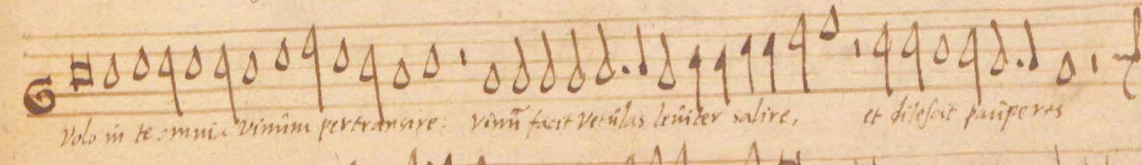 Volo in te omnia vinum pertransire, vinū facit vetulas leuiter salire, et diłescit pauperes